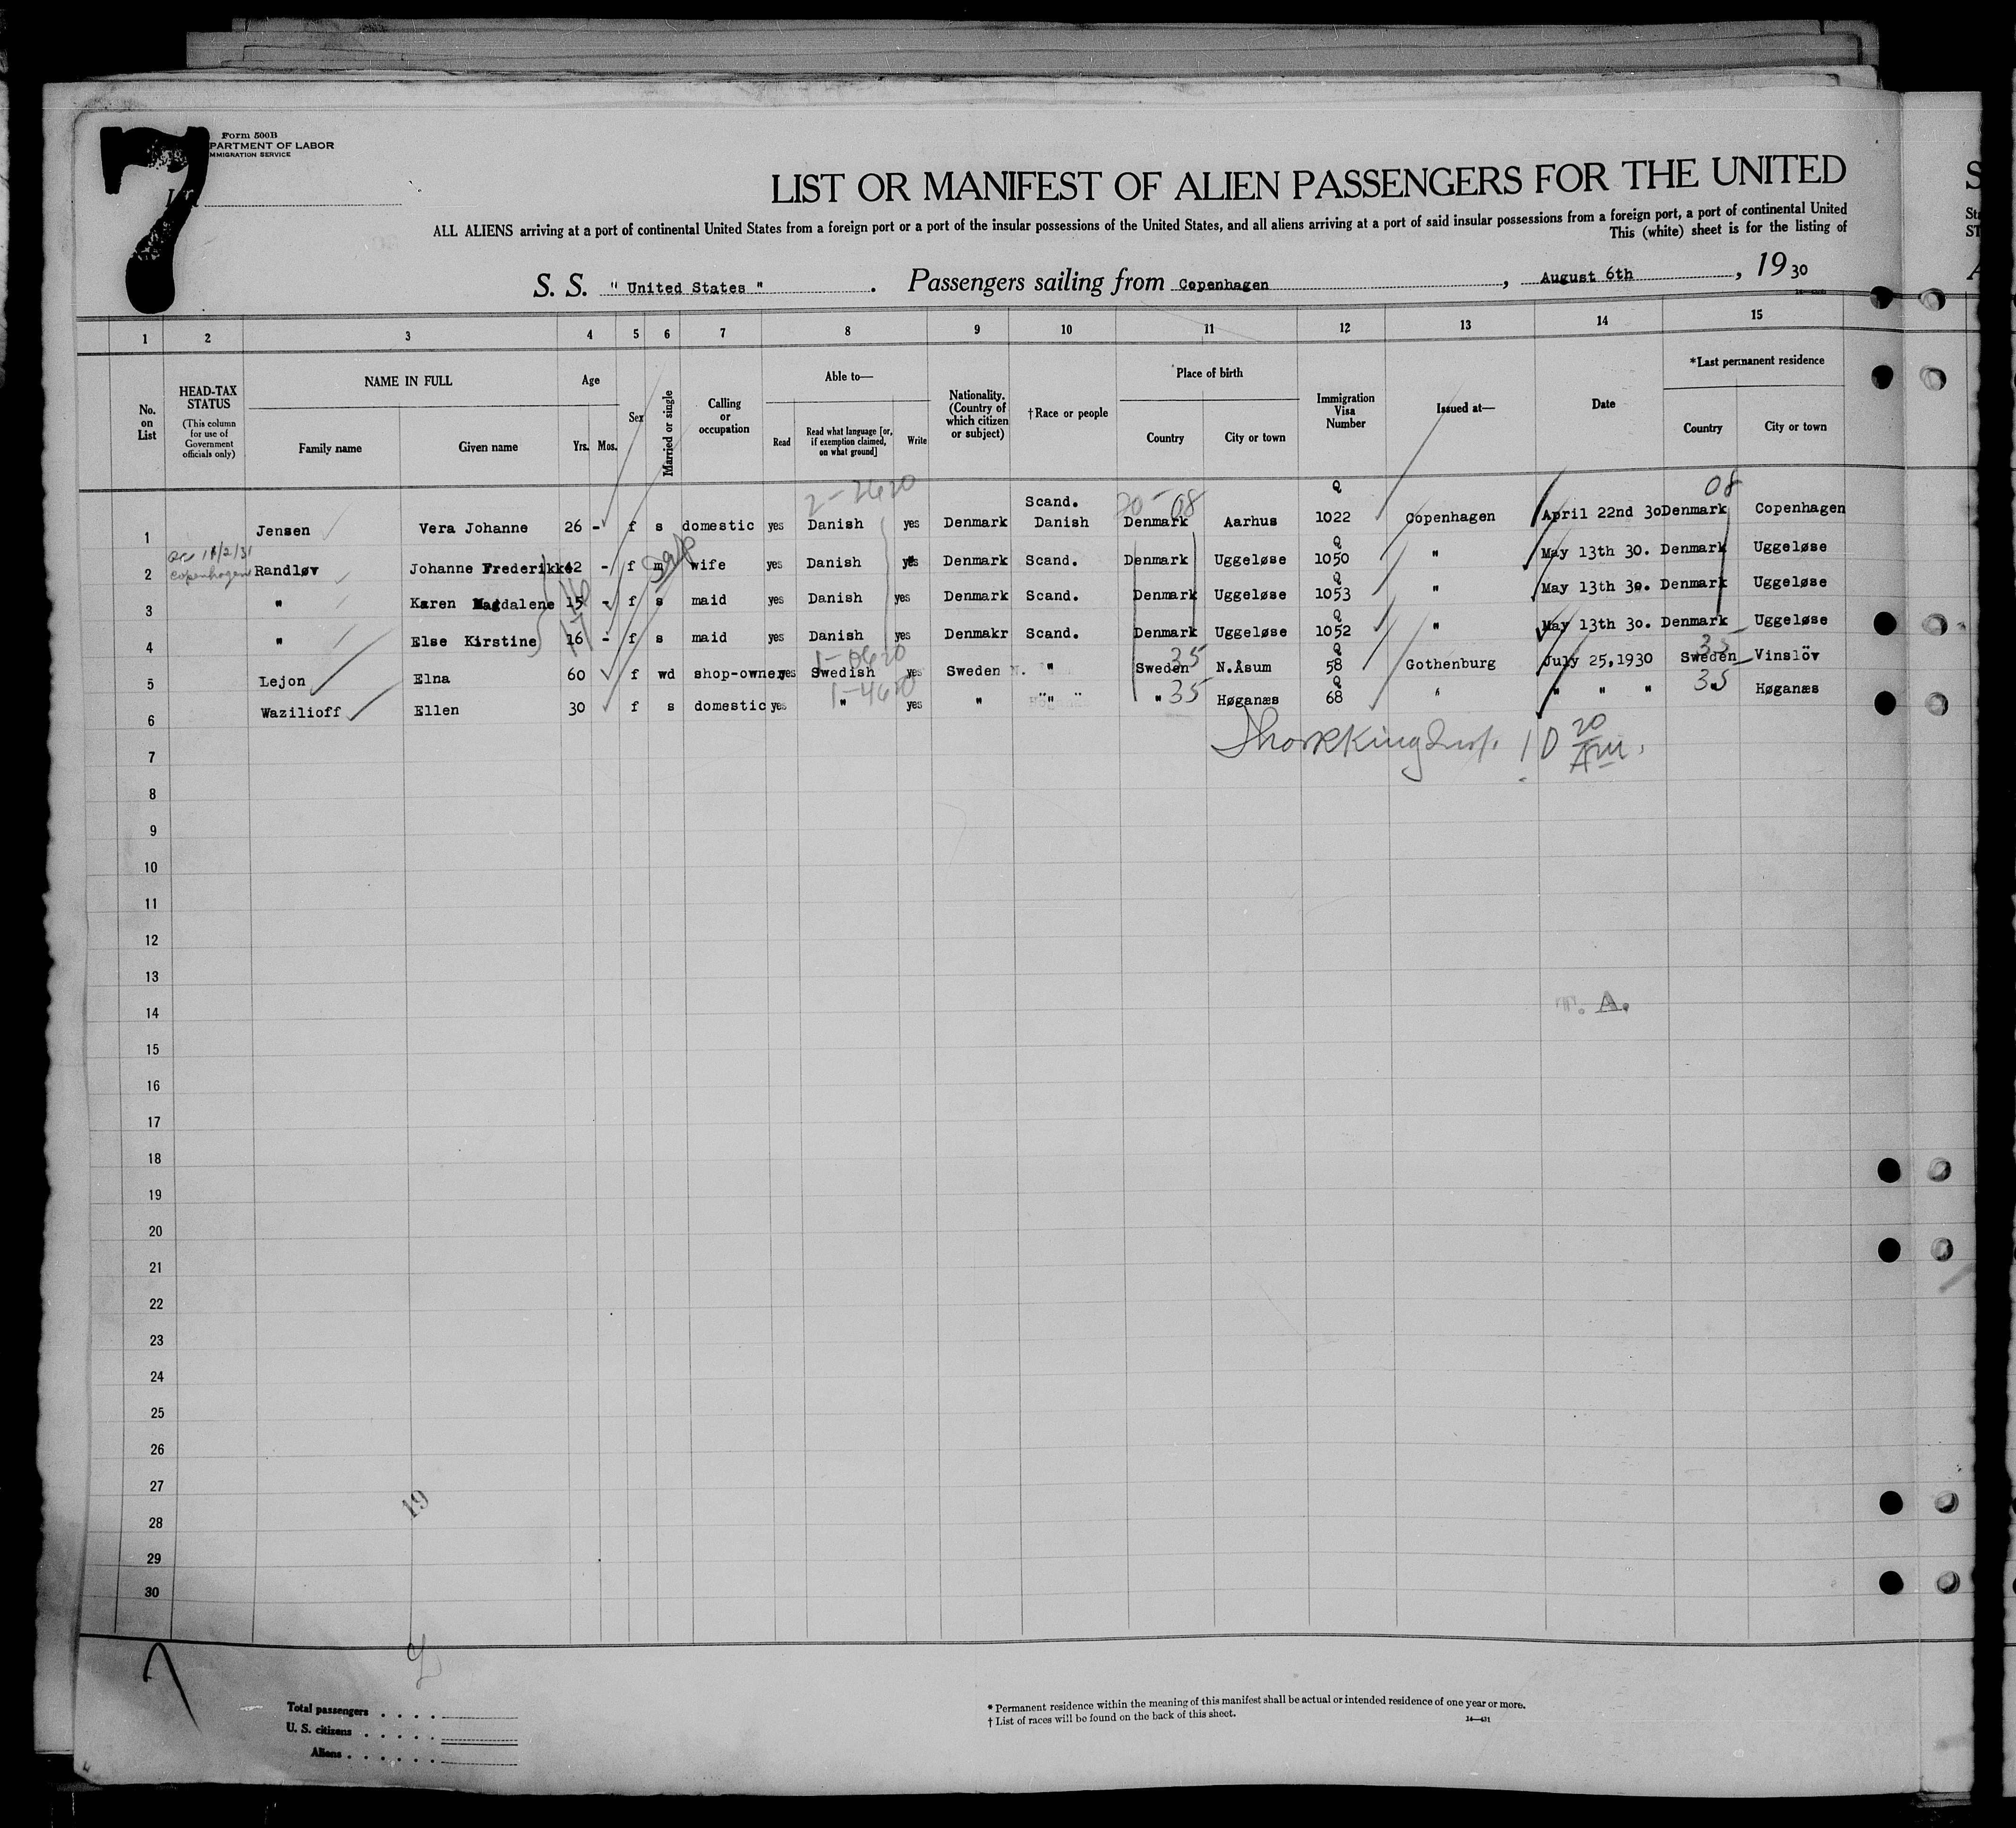 7
Form 500B
PARTMENT OF LABOR
MMIGRATION SERVICE
LIST OR MANIFEST OF ALIEN PASSENGERS FOR THE UNITED
ALL ALIENS arriving at a port of continental United States from a foreign port or a port of the insular possessions of the United States, and all aliens arriving at a port of said insular possessions from a foreign port, a port of continental United
This (white) sheet is for the listing of
S. S. " United States ". Passengers sailing from Copenhagen, August 6th, 1930
1 2 3 4 5 6 7 8 9 10 11 12 13 14 15
No. on List
HEAD-TAX STATUS (This column for use of Government officials only)
NAME IN FULL Family name Given name
Age Yrs. Mos.
Sex
Married or single
Calling or occupation
Able to— Read Read what language [or, if exemption claimed, on what ground] Write
Nationality. (Country of which citizen or subject)
†Race or people
Place of birth Country City or town
Immigration Visa Number
Issued at—
Date
*Last permanent residence Country City or town
2-2620 20-08 08
1 Jensen Vera Johanne 26 - f s domestic yes Danish yes Denmark Scand. Danish Denmark Aarhus Q 1022 Copenhagen April 22nd 30 Denmark Copenhagen
11/2/31 Copenhagen
2 Randløv Johanne Frederikke 42 - f m wife yes Danish yes Denmark Scand. Denmark Uggeløse Q 1050 " May 13th 30. Denmark Uggeløse
3 " Karen Magdalene 15 - f s maid yes Danish yes Denmark Scand. Denmark Uggeløse Q 1053 " May 13th 30. Denmark Uggeløse
16
4 " Else Kirstine 16 - f s maid yes Danish yes Denmakr Scand. Denmark Uggeløse Q 1052 " May 13th 30. Denmark Uggeløse
17
1-0620 35 35
5 Lejon Elna 60 f wd shop-owner yes Swedish yes Sweden " Sweden N.Åsum Q 58 Gothenburg July 25,1930 Sweden Vinslöv
1-4620 35 35
6 Wazilioff Ellen 30 f s domestic yes " yes " " " Høganæs Q 68 " " " " " Høganæs
10 20 AM.
7
8
9
10
11
12
13
14
A.
15
16
17
18
19
20
21
22
23
24
25
26
27
19
28
29
30
Total passengers
U. S. citizens
Aliens
* Permanent residence within the meaning of this manifest shall be actual or intended residence of one year or more.
† List of races will be found on the back of this sheet.
14—431